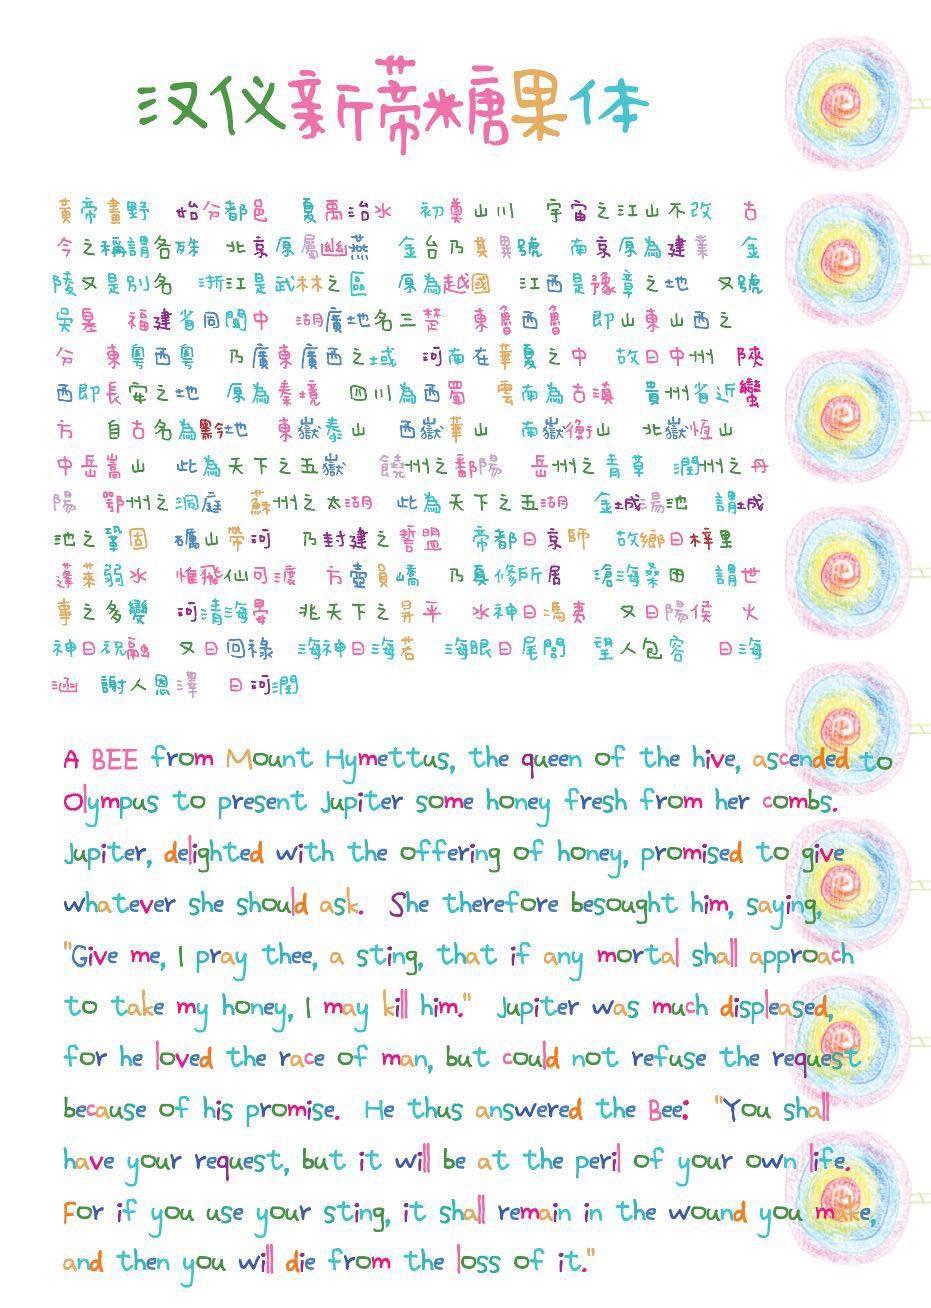 汉仪新蒂糖果体
黃帝畫野 始分都邑 夏禹治水 初奠山川 宇宙之江山不改 古
今之稱謂各殊 北京原屬幽燕 金台乃其異號 南京原為建業 金
陵又是別名 浙江是武林之區 原為越國 江西是豫章之地 又號
吳皋 福建省同閩中 湖廣地名三楚 東魯西魯 即山東山西之
分 東粵西粵 乃廣東廣西之域 河南在華夏之中 故日中州 陝
西即長安之地 原為秦境 四川為西蜀 雲南為古滇 貴州省近蠻
方 自古名為黔地 東嶽泰山 西嶽華山 南嶽衡山 北嶽恆山
中岳嵩山 此為天下之五嶽 饒州之鄱陽 岳州之青草 潤州之丹
陽 鄂州之洞庭 蘇州之太湖 此為天下之五湖 金城湯池 謂城
池之鞏固 礪山帶河 乃封建之誓盟 帝都日京師 故鄉日梓里
蓬萊弱水 惟飛仙可渡 方壺員嶠 乃真修所居 滄海桑田 謂世
事之多變 河清海晏 兆天下之昇平 水神日馮夷 又日陽侯 火
神日祝融 又日回祿 海神日海若 海眼日尾閭 望人包容 日海
涵 謝人恩澤 日河潤
A BEE from Mount Hymettus, the queen of the hive, ascended to
Olympus to present Jupiter some honey fresh from her combs.
Jupiter, delighted with the offering of honey, promised to give
whatever she should ask. She therefore besought him, saying,
"Give me, I pray thee, a sting, that if any mortal shall approach
to take my honey, I may kill him." Jupiter was much displeased,
for he loved the race of man, but could not refuse the request
because of his promise. He thus answered the Bee: "You shall
have your request, but it will be at the peril of your own life.
For if you use your sting, it shall remain in the wound you make,
and then you will die from the loss of it."